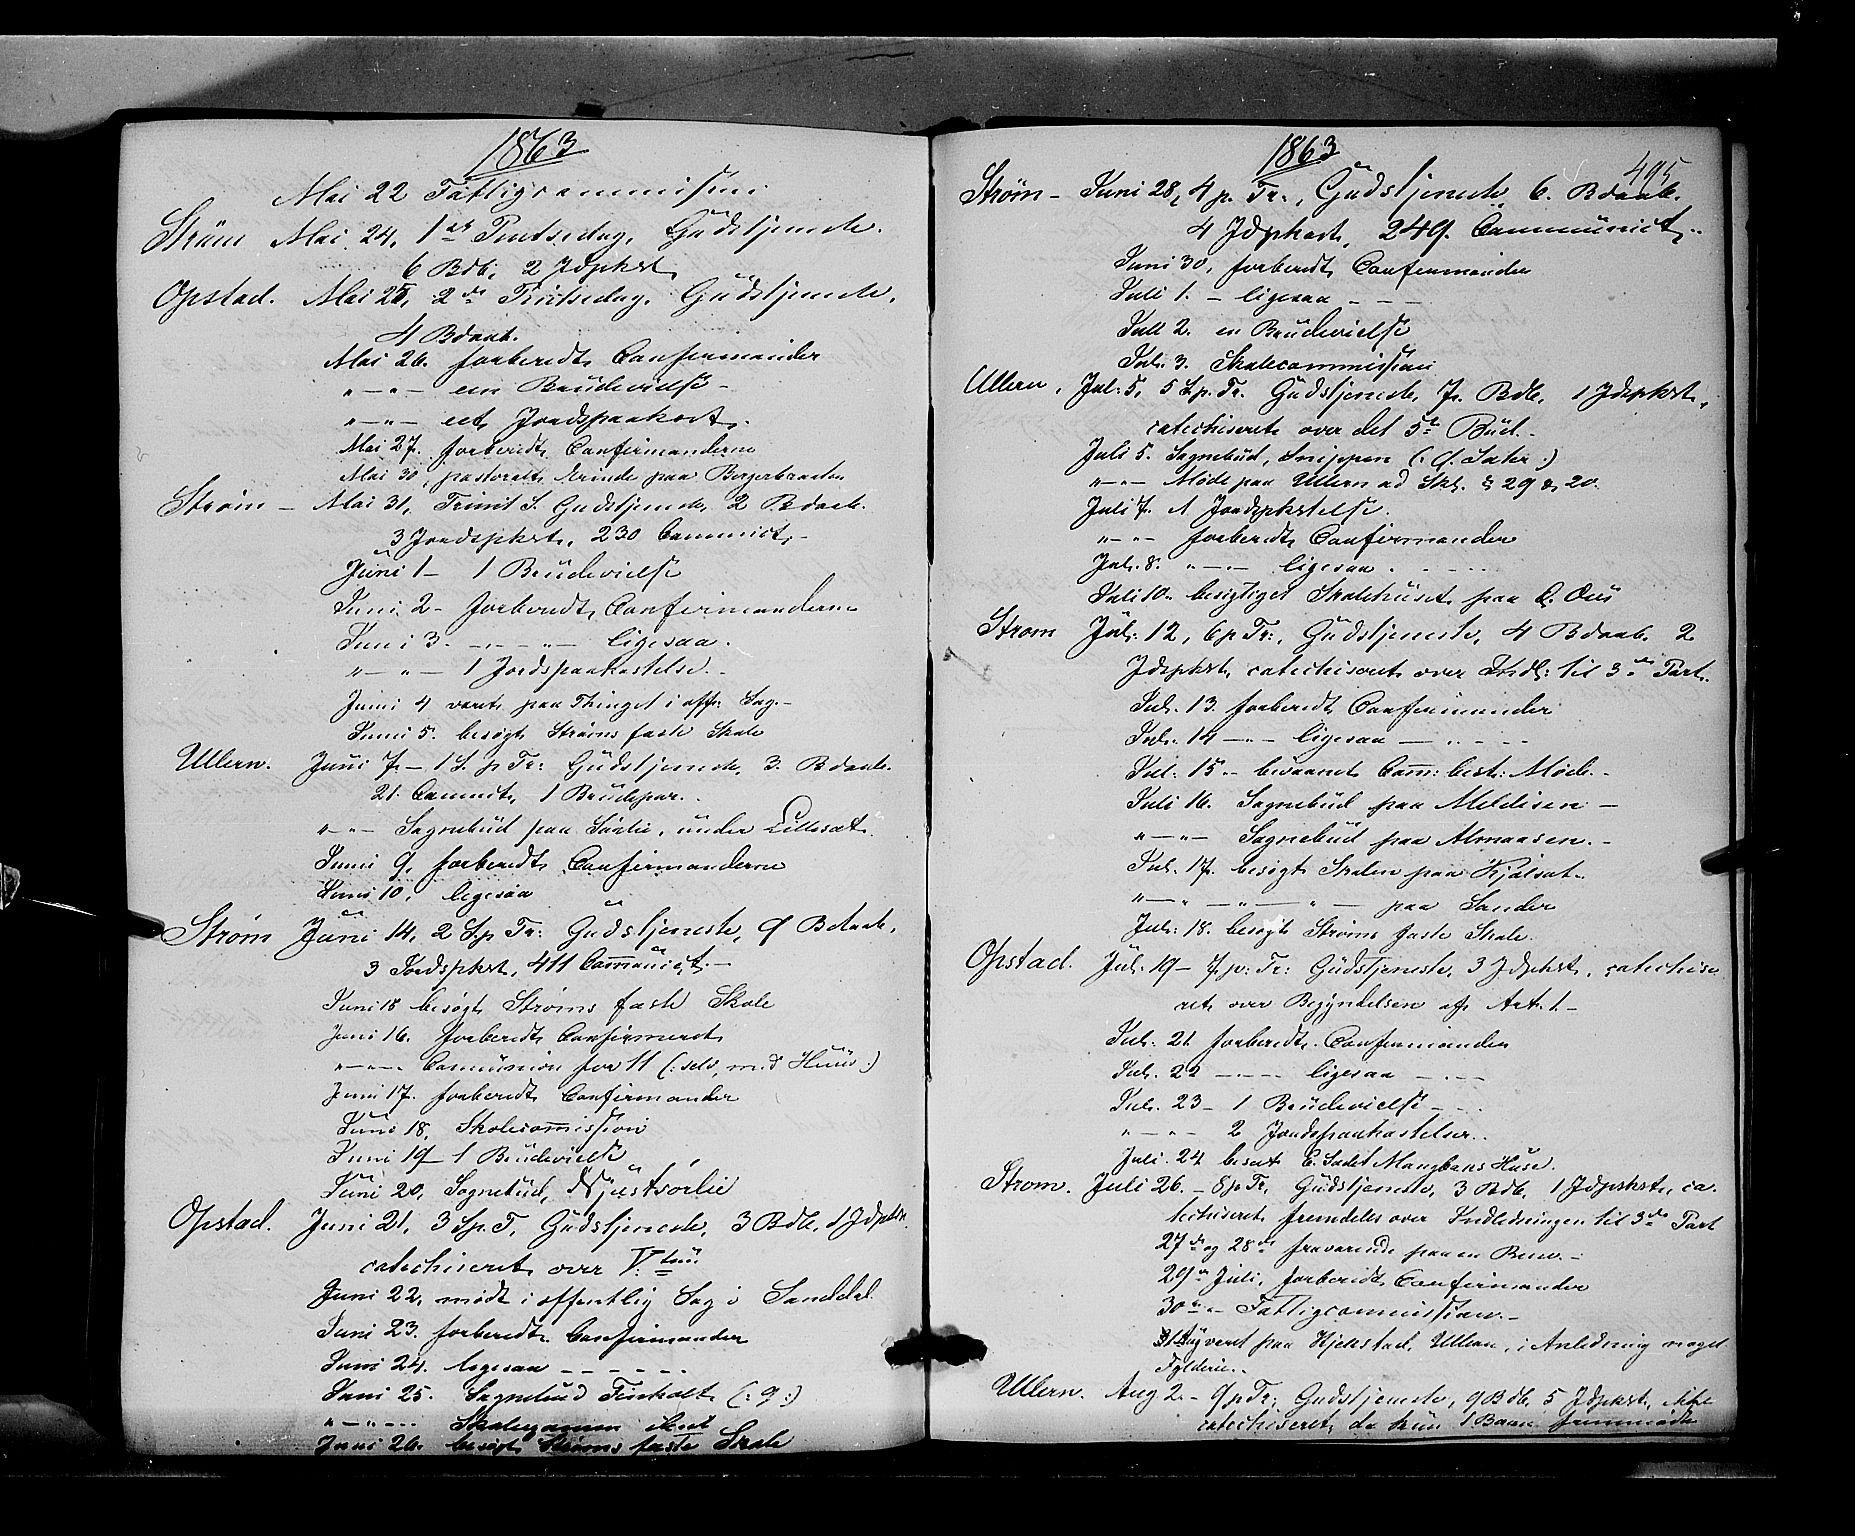 1863
Mai 22 Fattigcommission
Strøm Mai 24, 1ste Pintsedag, Gudstjeneste.
6 Bdb, 2 Jdpkst,
Opstad. Mai 25, 2den Pintsedag, Gudstjeneste,
4 Bdaab.
Mai 26. forberedt, Confirmander
" — " — en Brudevielse —
" — " — et Jordspaakast.
Mai 27. forberedt, Confirmanderne
Mai 30, pastoralt Ærinde paa
Strøm — Mai 31, Trinit S. Gudstjeneste, 2 Bdaab.
3 Jordspkst, 230 Commict, —
Juni 1 — 1 Brudevielse
Juni 2 — forberedt, Confirmanderne
Juni 3. — " — " — ligesaa.
" — " — 1 Jordspaakastelse. —
Juni 4 været paa Thinget i off. Sag. —
Juni 5. besøgt Strøms faste Skole
Ullern. Juni 7. — 1 S. p Tr: Gudstjeneste, 3. Bdaab.
21. Commict, 1 Brudepar. —
" — " — Sognebud paa Sørlie, under Lillesæt.
Juni 9, forberedt, Confirmanderne
Juni 10, ligesaa
Strøm Juni 14, 2 S p Tr: Gudstjeneste, 9 Bdaab,
3 Jordspkst, 411 Commünict. —
Juni 18 besøgt Strøms faste Skole
Juni 16. forberedt Confirmert
" — " — Communion for 11 (: selv, med Huus :)
Juni 17. forberedt Confirmander
Juni 18, Skolecommission
Juni 19 — 1 Brudevielse
Juni 20, Sognebud,
Opstad. Juni 21, 3 S.p. T, Gudstjeneste, 3 Bdb, 1 Jdpkst.
catechiseret over V.
Juni 22, mødt i offentlig Sag i Sanddal
Juni 23. forberedt Confirmander
Juni 24. ligesaa — — — —
Juni 25. Sognebud (: 9 :)
" — " — Skoleexamen
Juni 26. besøgt Strøms faste Skole
1863
495
Strøm — Juni 28, 4 p. Tr:, Gudstjeneste, 6. Bdaab.
4 Jdpkast, 249. Communict, —
Juni 30, forberedt, Confirmander
Juli 1. — ligesaa — — —
Juli 2. en Brudevielse
Jul. 3. Skolecommission
Ullern, Jul: 5, 5 S.p. Tr. Gudstjeneste, 7. Bdb, 1 Jdpkst,
catechiseret over det 5te Bud.
Juli 5. Sognebud, Snippen (: :)
" — " — Møde paa Ullern ad Skl. § 29 & 20.
Juli 7. 1 Jordspkstelse.
" — " — forberedt Confirmander
Jul. 8. " — " — ligesaa. — — —
Juli 10. besigtiget Skolehuset paa
Strøm Jul: 12, 6 p Tr:, Gudstjeneste, 4 Bdaab. 2
Jdpkst, catechiseret over Indl: til 3die Part.
Jul. 13. forberedt Confirmander
Jul. 14 — " — ligesaa — " — — —
Jul. 15. — Com: best: Møde. —
Juli 16. Sognebud paa —
" — " — Sognebud paa Almaasen. —
Jul. 17. besøgt Skolen paa Kjølsæt.
" — " — " — " — paa Sander
Jul. 18. besøgt Strøms faste Skole.
Opstad. Jul. 19 — 7. p: Tr: Gudstjeneste, 3 Jdpkst, catechise
ret over Begyndelsen af Art. 1. —
Jul. 21 forberedt Confirmander
Jul. 22 — " — ligesaa — — —
Jul. 23 — 1 Brudevielse — —
" — " — 2 Jordspaakastelser.
Juli. 24 Huse.
Strøm. Juli 26. — 8 p Tr, Gudstjeneste, 3 Bdb, 1 Jdpkst, ca-
techiseret fremdeles over Indledningen til 3die Part
27de og 28de fraværende paa en —
29de Juli, forberedt Confirmander
30te — Fattigcommission. —
31 været paa Hjelstad, Ullern, i Anledning
Ullern. Aug 2. — 9 p Tr: Gudstjeneste, 9 Bdb, 5 Jdpkst, ikke
catechiseret, da kun 1 Barn fremmødte